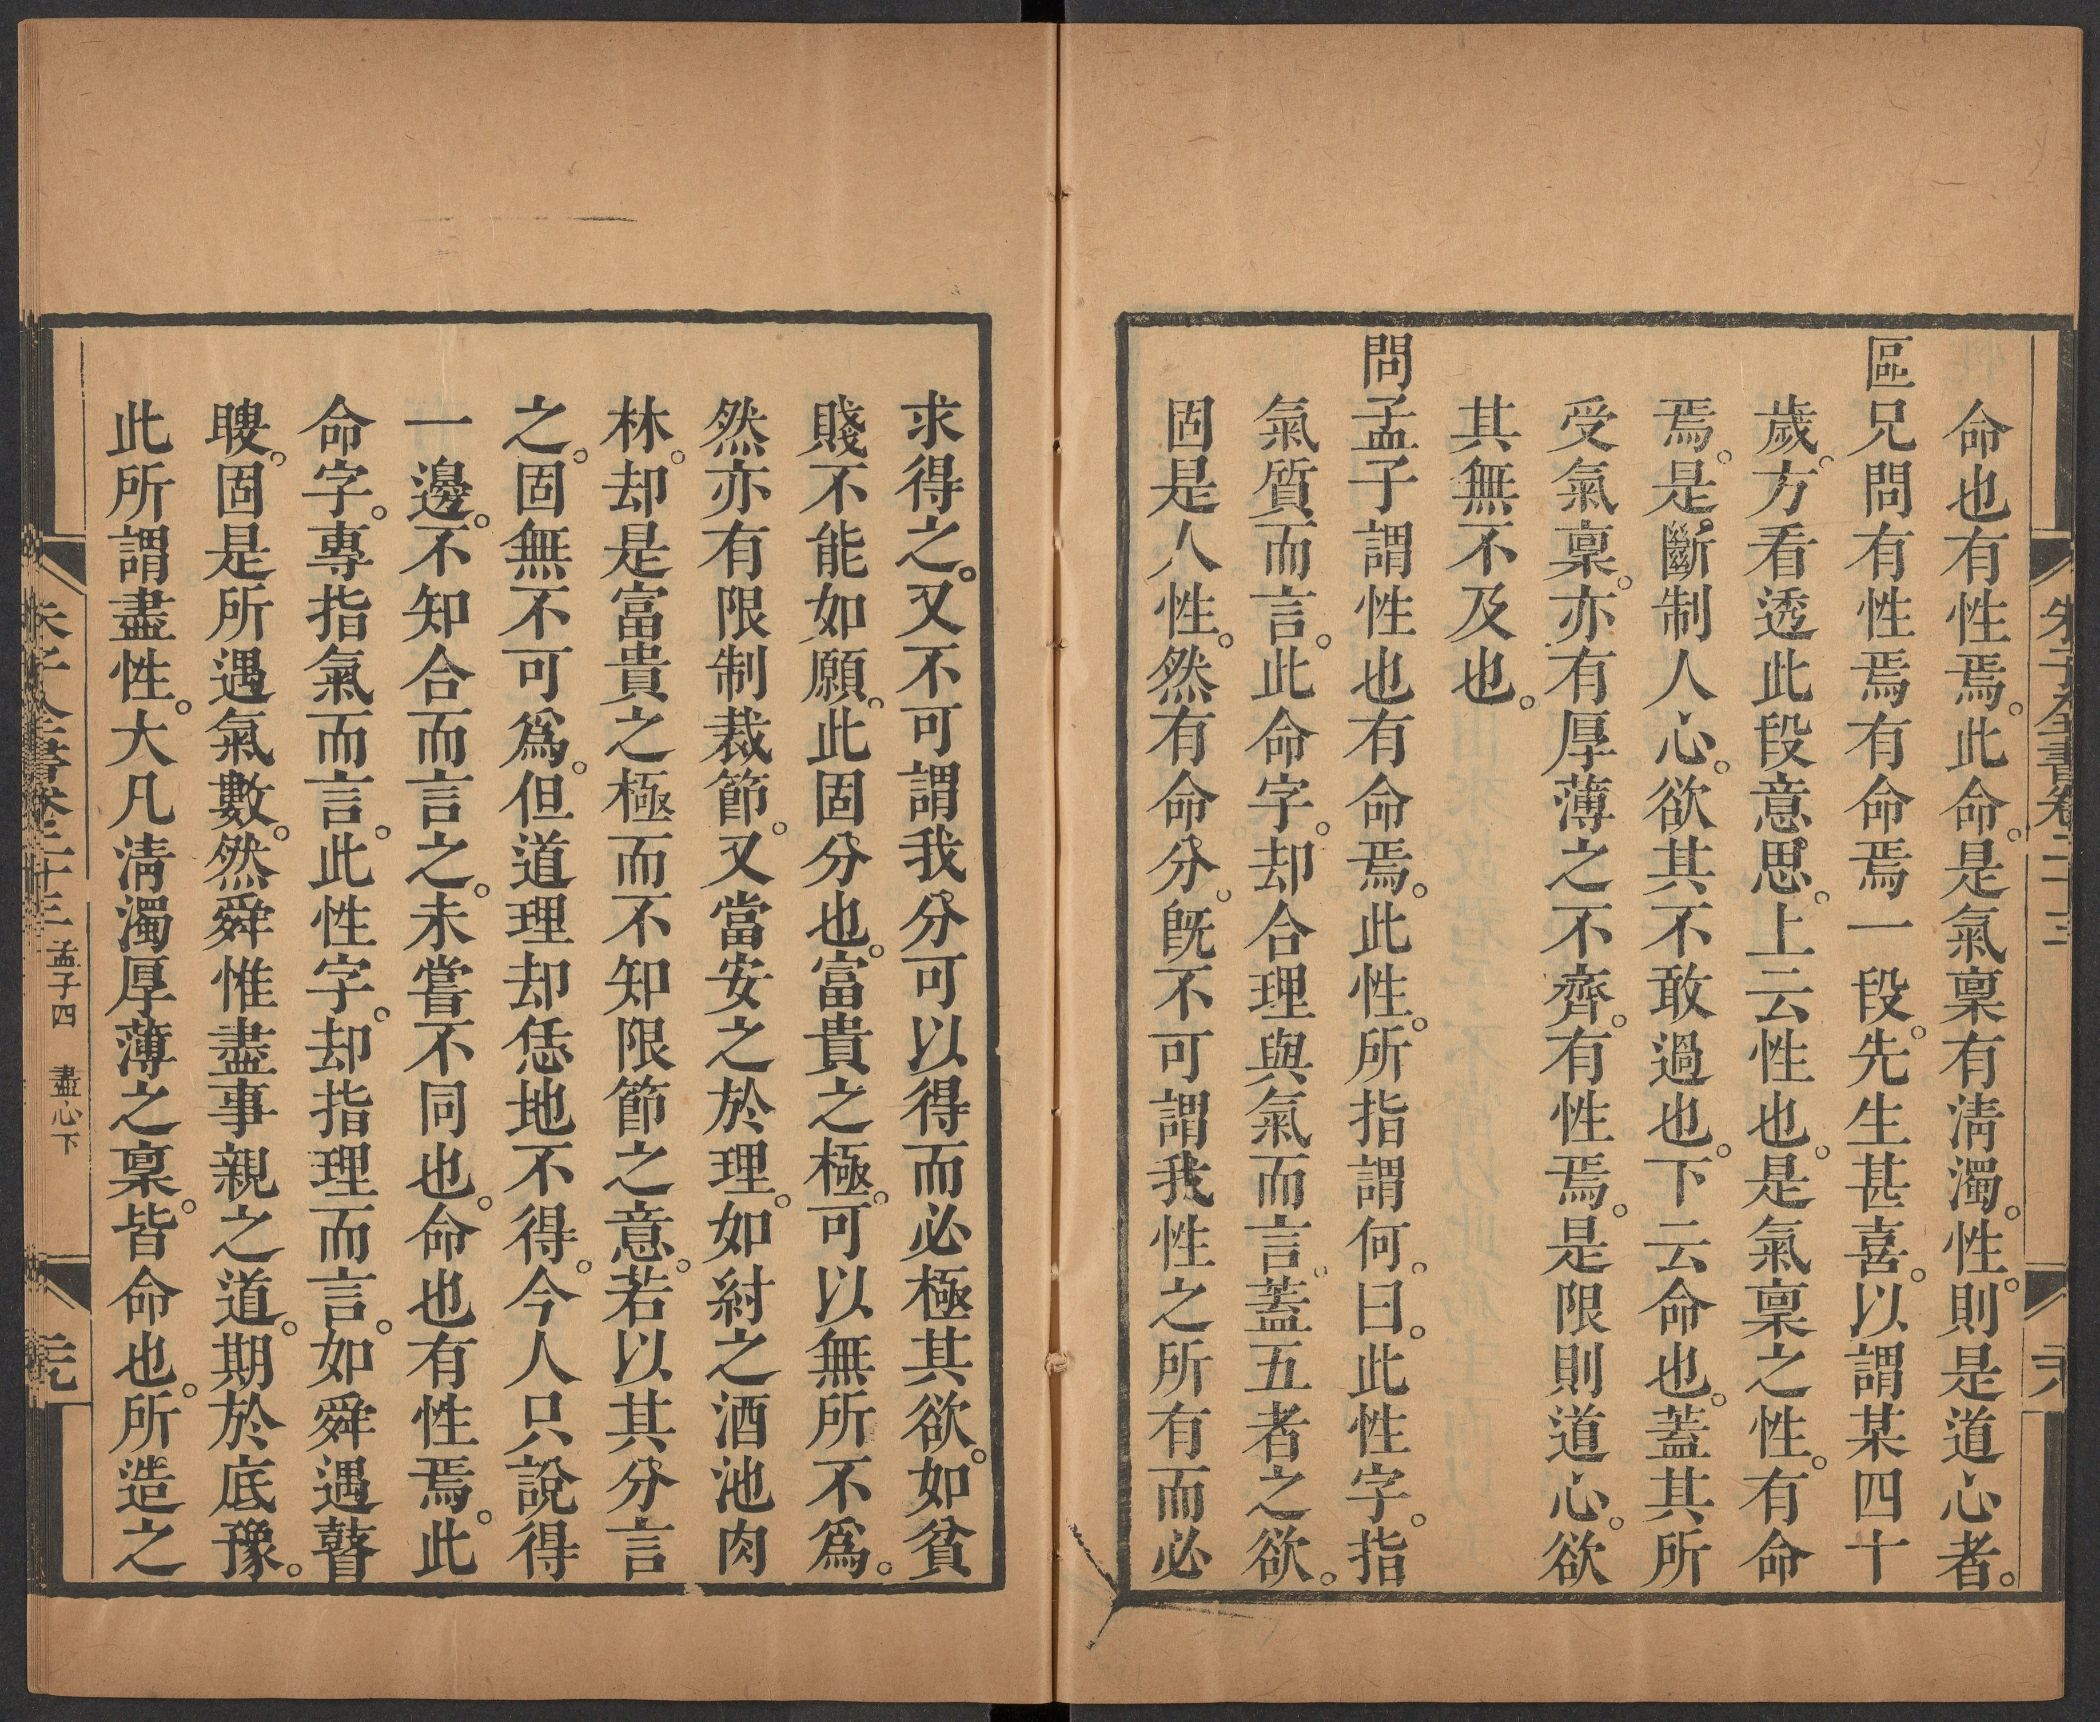 命也有性焉。此命。是氣稟有清濁。性。則是道心者。
區兄問有性焉有命焉一段。先生甚喜。以謂某四十
歲。方看透此段意思。上云性也。是氣稟之性。有命
焉。是斷制人心。欲其不敢過也。下云命也。蓋其所
受氣稟。亦有厚薄之不齊。有性焉。是限則道心。欲
其無不及也。
問孟子謂性也有命焉。此性。所指謂何。曰。此性字。指
氣質而言。此命字。却合理與氣而言。蓋五者之欲。
固是人性。然有命分。旣不可謂我性之所有而必
朱子全書卷二十三
求得之。又不可謂我分可以得而必極其欲。如貧
賤不能如願。此固分也。富貴之極。可以無所不爲。
然亦有限制裁節。又當安之於理。如紂之酒池肉
林。却是富貴之極而不知限節之意。若以其分言
之。固無不可爲。但道理却恁地不得。今人只說得
一邊。不知合而言之。未嘗不同也。命也有性焉。此
命字。專指氣而言。此性字。却指理而言。如舜遇瞽
瞍。固是所遇氣數。然舜惟盡事親之道。期於底豫。
此所謂盡性。大凡清濁厚薄之稟。皆命也。所造之
朱子全書卷二十三 孟子四 盡心下